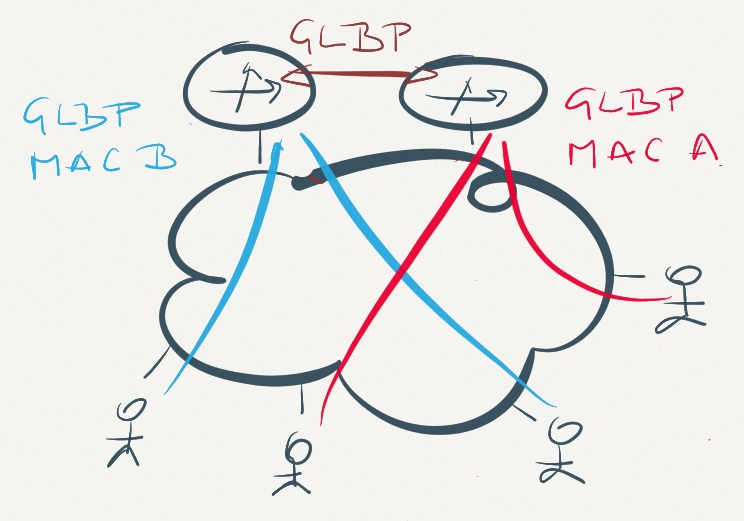 GLBP
GLBP
MAC B
GLBP
MAC A